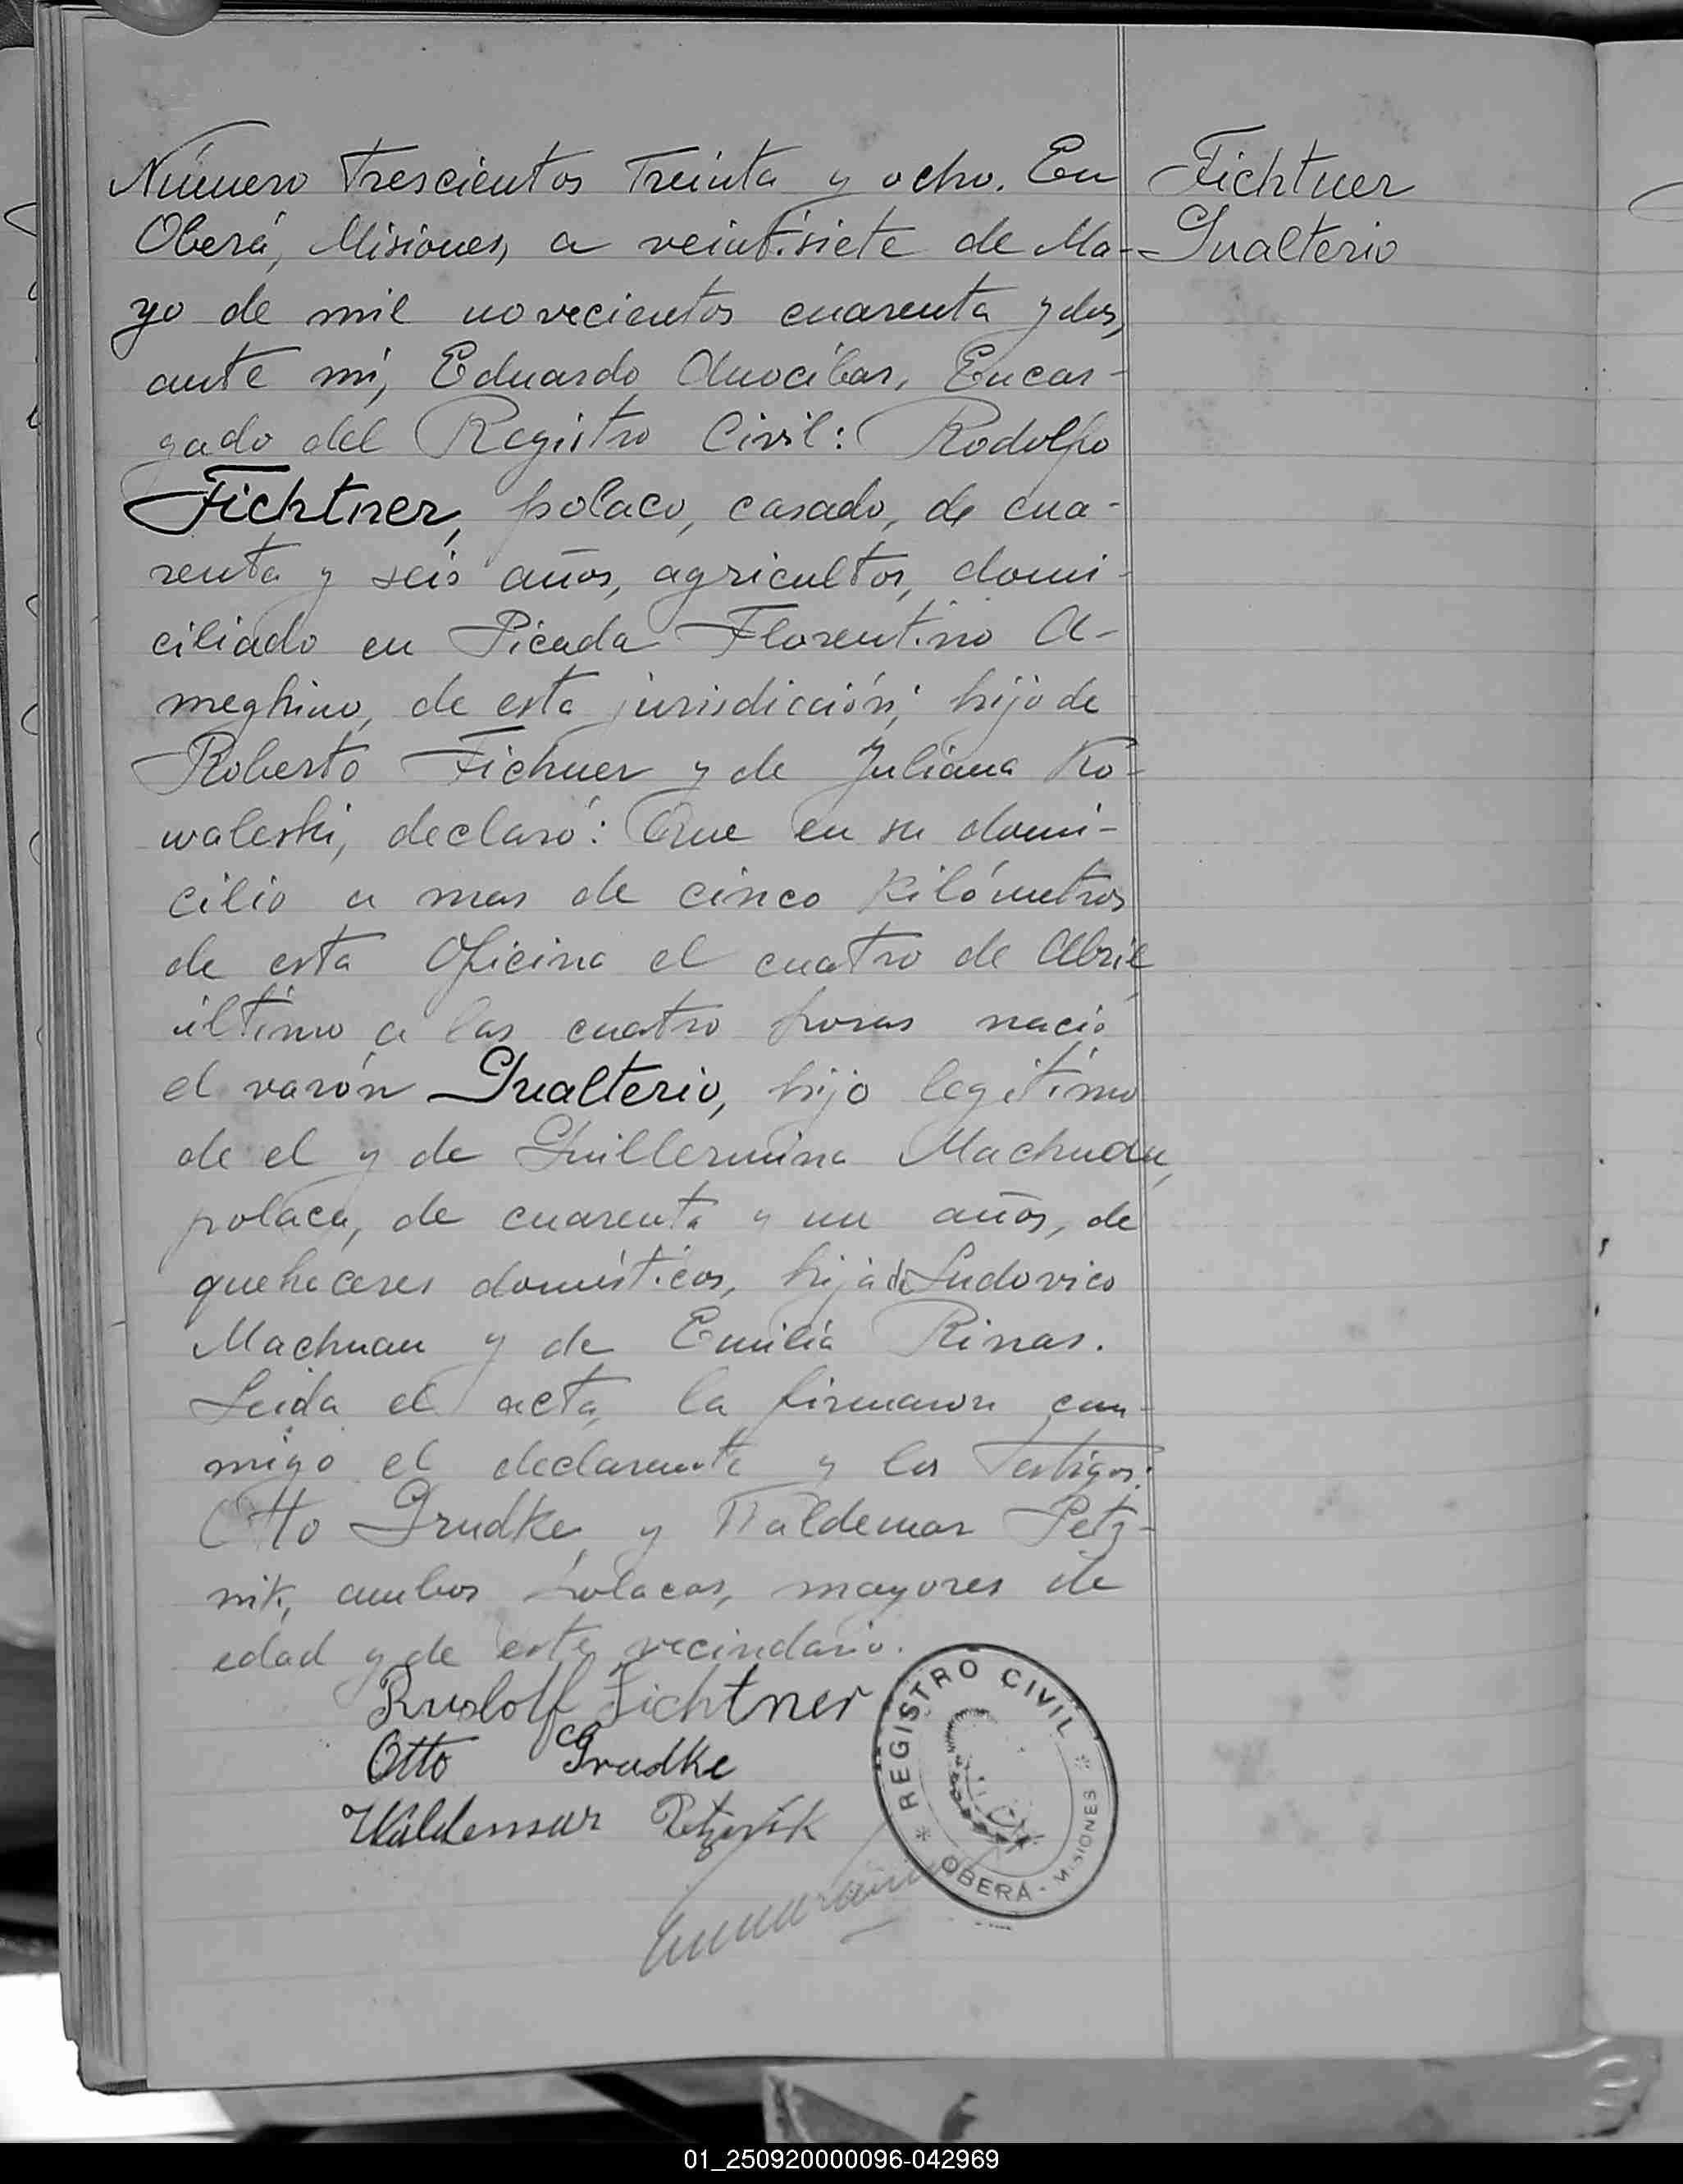 Número trescientos treinta y ocho. En
Fichtner
Oberá, Misiones, a veintisiete de Ma-
Gualterio
yo de mil novecientos cuarenta y dos,
ante mí, Eduardo Anocíbar, Encar-
gado del Registro Civil: Rodolfo
Fichtner, polaco, casado, de cua-
renta y seis años, agricultor, domi-
ciliado en Picada Florentino A-
meghino, de esta jurisdicción, hijo de
Roberto Fichner y de Juliana Ko-
waleski, declaró: Que en su domi-
cilio a mas de cinco kilómetros
de esta Oficina el cuatro de Abril
último a las cuatro horas nació
el varón Gualterio, hijo legítimo
de el y de Guillermina
polaca, de cuarenta y un años, de
quehaceres domésticos, hija de Ludovico
Machnau y de Emilia Rinas.
Leida el acta, la firmaron con-
migo el declarante y los testigos:
Otto Grudke y Waldemar Petz-
nik, ambos polacos, mayores de
edad y de este vecindario.
Rudolf Fichtner
Otto Grudke
Waldemar Petznik
REGISTRO CIVIL
OBERÁ - MISIONES
01_250920000096-042969